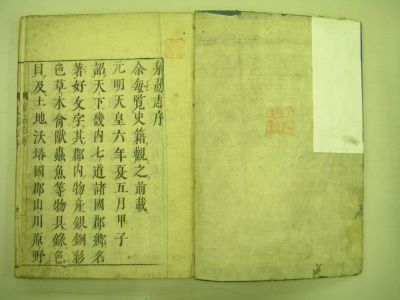 泉州志序
余每覧史籍觀之前載
元明天皇六年夏五月甲子
詔天下畿内七道諸國郡郷名
著好文字其郡内物産銀銅彩
色草木禽獸蟲魚等物具錄色
目及土地沃塉國郡山川原野